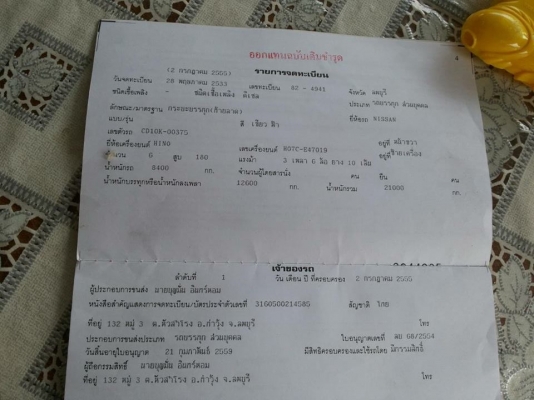 ออกแทนฉบับเดิมชำรุด
(2 กรกฎาคม 2555) รายการจดทะเบียน
วันจดทะเบียน 28 พฤษภาคม 2553 เลขทะเบียน 82 - 4941 จังหวัด ลพบุรี
ชนิดเชื้อเพลิง - ชนิดเชื้อเพลิง ดีเซล ประเภท รถบรรทุก ส่วนบุคคล
ลักษณะ/มาตรฐาน กระบะบรรทุก(ท้ายลาด) ยี่ห้อรถ
แบบ/รุ่น สี เขียว ฟ้า
เลขตัวรถ CD10K-00375
ยี่ห้อเครื่องยนต์ HINO เลขเครื่องยนต์ H07C-E47019 อยู่ที่
จำนวน 6 สูบ 180 แรงม้า 3 เพลา 6 ล้อ ยาง 10 เส้น อยู่ที่
น้ำหนักรถ 8400 กก. จำนวนผู้โดยสารนั่ง คน ยืน คน
น้ำหนักบรรทุกหรือน้ำหนักลงเพลา 12600 กก. น้ำหนักรวม 21000 กก.
เจ้าของรถ
ลำดับที่ 1 วัน เดือน ปี ที่ครอบครอง 2 กรกฎาคม 2555
ผู้ประกอบการขนส่ง
หนังสือสำคัญแสดงการจดทะเบียน/บัตรประจำตัวเลขที่ 3160500214585 สัญชาติ ไทย
ที่อยู่ 132 หมู่ 3 อ.ท่าวุ้ง จ.ลพบุรี โทร
ประกอบการขนส่งประเภท รถบรรทุก ส่วนบุคคล ใบอนุญาตเลขที่ ลบ 68/2554
วันสิ้นอายุใบอนุญาต 21 กุมภาพันธ์ 2559 มีสิทธิครอบครองและใช้รถโดย มีกรรมสิทธิ์
ผู้ถือกรรมสิทธิ์
ที่อยู่ 132 หมู่ 3 อ.ท่าวุ้ง จ.ลพบุรี โทร